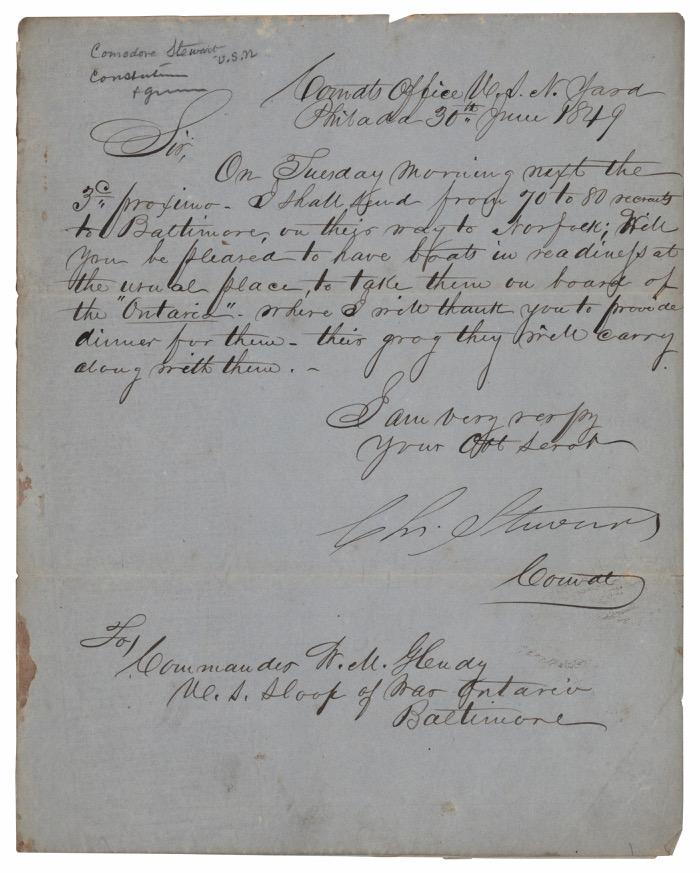 Comodore Stewart
U.S.N
Constitution
Comdts Office U. S. N. Yard
Philada 30th June 1849
Sir,
On Tuesday morning next the
3d. proximo - I shall send from 70 to 80 recruits
to Baltimore, on their way to Norfolk; Will
you be pleased to have boats in readiness at
the usual place, to take them on board of
the "Ontario" - where I will thank you to provide
dinner for them - their grog they will carry
along with them. -
I am very respy
Your Obt Servt
Chs. Stewart
Comdt
To,
Commander W. M. Glendy
U. S. Sloop of War Ontario
Baltimore